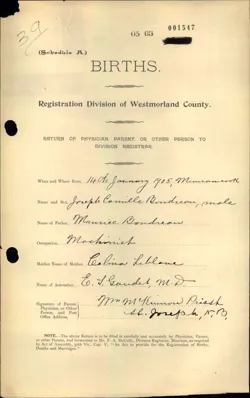 39
05 63
001547
(Schedule A.)
BIRTHS.
Registration Division of Westmorland County.
RETURN OF PHYSICIAN PARENT OR OTHER PERSON TO
DIVISION REGISTRAR.
When and Where Born, 14th January 1905, Memramcook
Name and Sex, Joseph Camille Boudreau, male
Name of Father, Maurice Boudreau
Occupation, Machinist
Maiden Name of Mother, Celina Leblanc
Name of Informant, E. T. Gaudet, M.D
Signature of Parent,
Physician, or Other
Person; and Post
Office Address,
Wm McKinnon Priest
St. Joseph N.B.
NOTE.—The above Return is to be filled in carefully and accurately by Physician, Parent,
or other Person, and forwarded to Division Registrar, Moncton, as required
by Act of Assembly, Cap. V, "An Act to provide for the Registration of Births,
Deaths and Marriages."